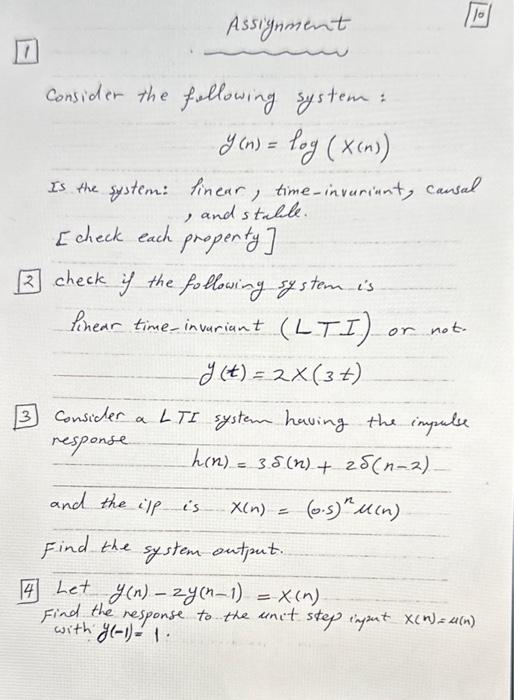 Assignment
10
1
Consider the following system :
y(n) = log (x(n))
Is the system: linear, time-invariant, causal
, and stable.
[check each property]
2 check if the following system is
linear time-invariant (LTI) or not.
y(t) = 2x(3t)
3 Consider a LTI system having the impulse
response
h(n) = 3δ(n) + 2δ(n-2)
and the i/p is x(n) = (0.5)ⁿ u(n)
Find the system output.
4 Let y(n) - 2y(n-1) = x(n)
Find the response to the unit step input x(n)=u(n)
with y(-1)= 1.